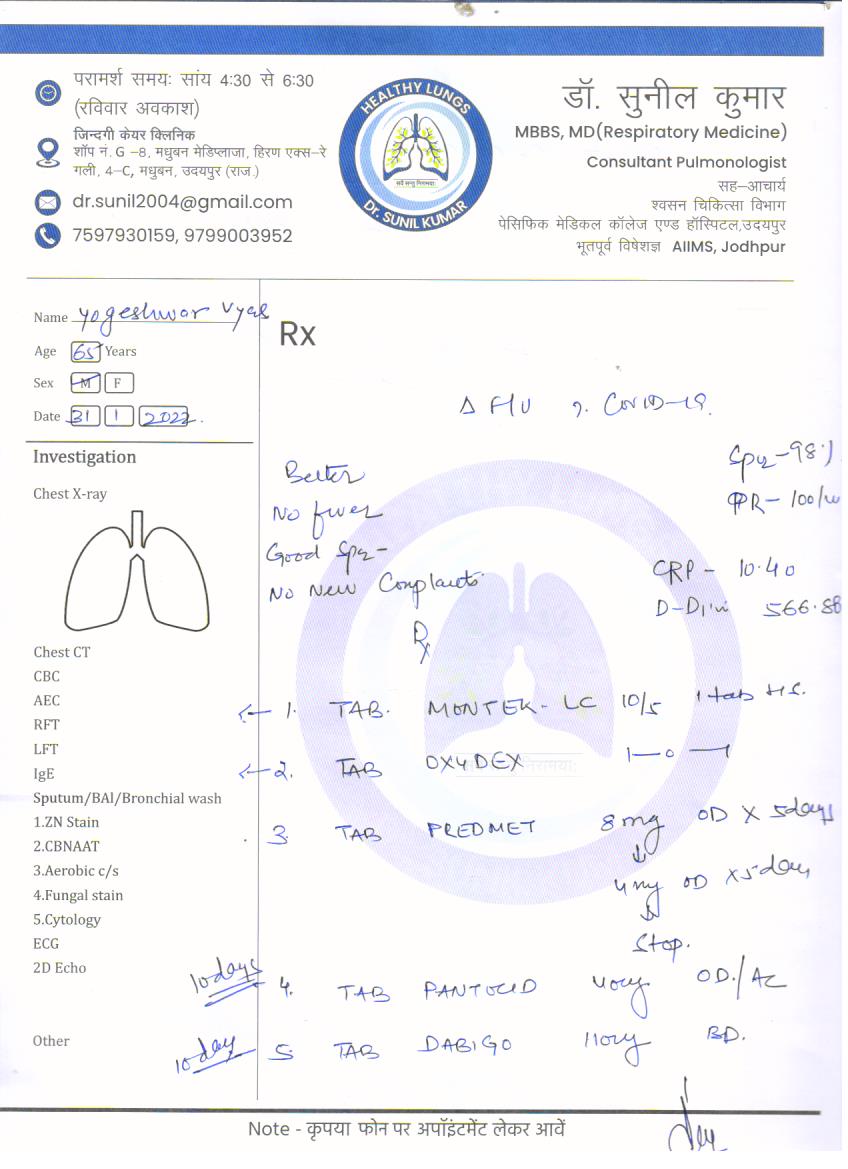 परामर्श समयः सांय 4:30 से 6:30
(रविवार अवकाश)
जिन्दगी केयर क्लिनिक
शॉप नं. G –8, मधुबन मेडिप्लाजा, हिरण एक्स–रे
गली, 4–C, मधुबन, उदयपुर (राज.)
dr.sunil2004@gmail.com
7597930159, 9799003952
HEALTHY LUNGS
सर्वे सन्तु निरामयाः
Dr. SUNIL KUMAR
डॉ. सुनील कुमार
MBBS, MD(Respiratory Medicine)
Consultant Pulmonologist
सह–आचार्य
श्वसन चिकित्सा विभाग
पेसिफिक मेडिकल कॉलेज एण्ड हॉस्पिटल,उदयपुर
भूतपूर्व विषेशज्ञ AIIMS, Jodhpur
Name Yogeshwar Vyas
Age 65 Years
Sex M F
Date 31 1 2022.
Rx
Δ F/U COVID-19.
Better
No fever
Good
No New Complaints
Spo2 - 98%
PR - 100/
CRP - 10.40
D-Dim 566.88
Rx
1. TAB. MONTEK-LC 10/5 1 tab HS.
2. TAB OXYDEX 1—0—1
3. TAB PREDMET 8mg OD X 5days
↓
4mg OD X5day
↓
Stop.
10days 4. TAB PANTOCID 40mg OD/AC
10day 5. TAB DABIGO 110mg BD.
Investigation
Chest X-ray
Chest CT
CBC
AEC
RFT
LFT
IgE
Sputum/BAl/Bronchial wash
1.ZN Stain
2.CBNAAT
3.Aerobic c/s
4.Fungal stain
5.Cytology
ECG
2D Echo
Other
Note - कृपया फोन पर अपॉइंटमेंट लेकर आवें